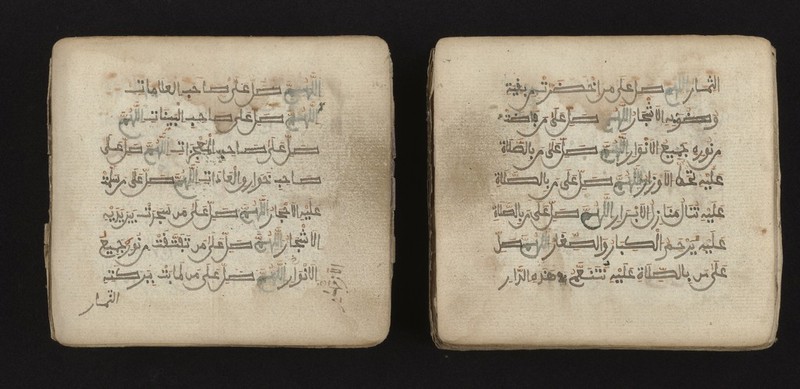 اللهم صل على صاحب العلامات
اللهم صل على صاحب البينات اللهم
صل على صاحب المعجزات اللهم صل على
صاحب خوارق العادات اللهم صل على من سلمت
عليه الاحجار اللهم صل على من سجدت بين يديه
الاشجار اللهم صل على من تفتقت من نوره جميع
الانوار اللهم صل على من طابت ببركته
الازهار
الثمار
الثمار اللهم صل على من اخضرت من بقية
وضوءه الاشجار اللهم صل على من فاضت
من نوره جميع الانوار اللهم صل على من بالصلاة
عليه تحط الاوزار اللهم صل على من بالصلاة
عليه تنال منازل الابرار اللهم صل على من بالصلاة
عليه يرحم الكبار والصغار اللهم صل
على من بالصلاة عليه نتنعم في هذه الدار